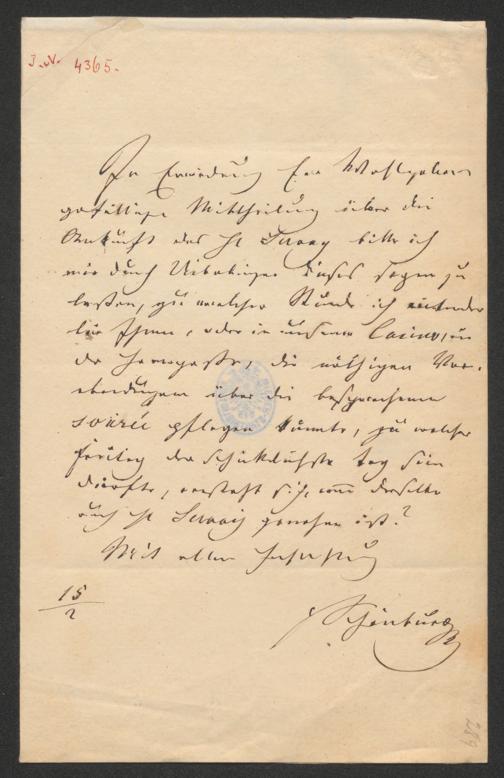 J.N. 4365.
In Erwiederung Euer Wohlgeboren
gefälligen Mittheilung über die
Ankunft des H Servay bitte ich
mir durch Ueberbringer dieses sagen zu
lassen, zu welcher Stunde ich entweder
bei Ihnen, oder in unserem Casino, in
der Herrngasse, die nöthigen Vor-
über die besprochene
soirée pflegen könnte, zu welcher
Freitag der schicklichste Tag sein
dürfte, versteht sich, wenn derselbe
auch H genehm ist?
Mit aller Hochachtung
15/2
Schönburg
289